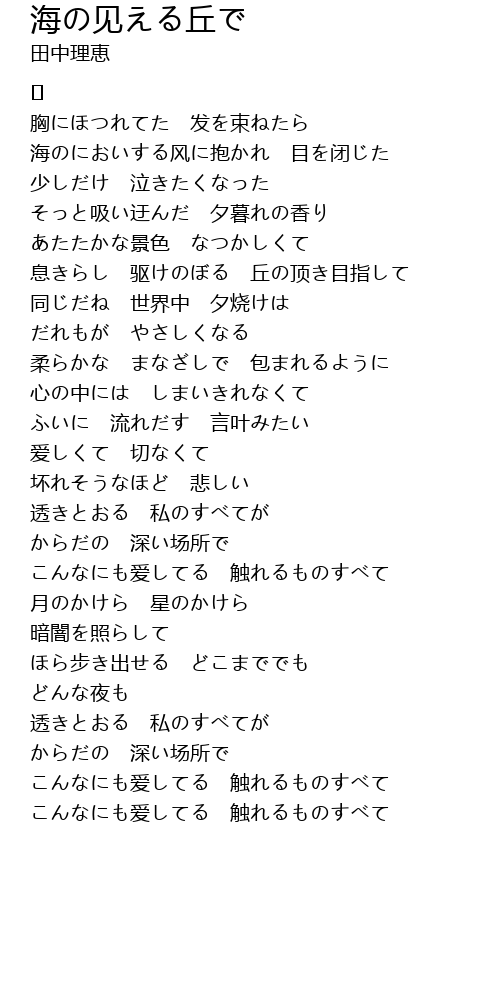 海の见える丘で
田中理恵
[]
胸にほつれてた　发を束ねたら
海のにおいする风に抱かれ　目を闭じた
少しだけ　泣きたくなった
そっと吸い迂んだ　夕暮れの香り
あたたかな景色　なつかしくて
息きらし　驱けのぼる　丘の顶き目指して
同じだね　世界中　夕烧けは
だれもが　やさしくなる
柔らかな　まなざしで　包まれるように
心の中には　しまいきれなくて
ふいに　流れだす　言叶みたい
爱しくて　切なくて
坏れそうなほど　悲しい
透きとおる　私のすべてが
からだの　深い场所で
こんなにも爱してる　触れるものすべて
月のかけら　星のかけら
暗闇を照らして
ほら步き出せる　どこまででも
どんな夜も
透きとおる　私のすべてが
からだの　深い场所で
こんなにも爱してる　触れるものすべて
こんなにも爱してる　触れるものすべて